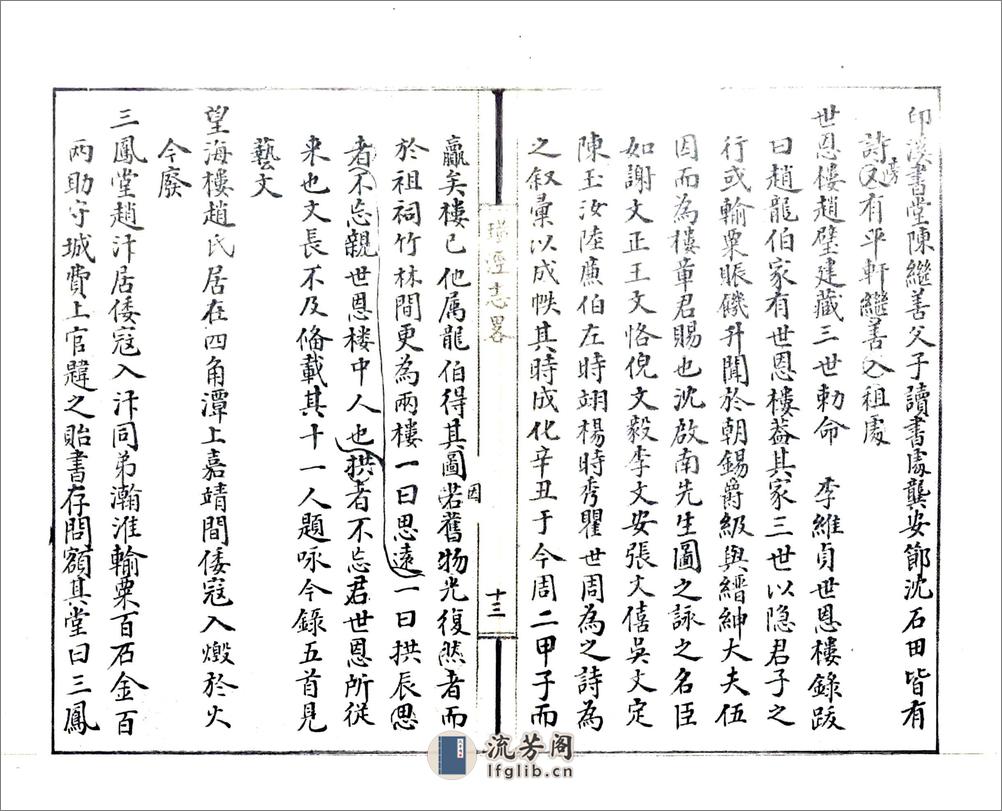 印溪書堂陳繼善父子讀書處龔安節沈石田皆有
詩又有平軒繼善入祖處
世恩樓趙璧建藏三世勅命　李維貞世恩樓錄跋
曰趙龍伯家有世恩樓葢其家三世以隐君子之
行或輸粟賑饑升聞於朝錫爵級與縉紳大夫伍
因而為樓章君賜也沈啟南先生圖之詠之名臣
如謝文正王文恪倪文毅李文安張文僖吳文定
陳玉汝陸廉伯左時翊楊時秀瞿世周為之詩為
之叙彙以成帙其時成化辛丑于今周二甲子而
璜涇志畧
十三
贏矣樓已他属龍伯得其圖若舊物光復然者而
因
於祖祠竹林間更為兩樓一曰思遠一曰拱辰思
者不忘親世恩樓中人也拱者不忘君世恩所從
来也文長不及俻載其十一人題咏今錄五首見
藝文
望海樓趙氏居在四角潭上嘉靖間倭寇入燬於火
今廢
三鳳堂趙汴居倭寇入汴同弟瀚淮輸粟百石金百
两助守城費上官韙之貽書存問額其堂曰三鳳
流芳阁
lfglib.cn